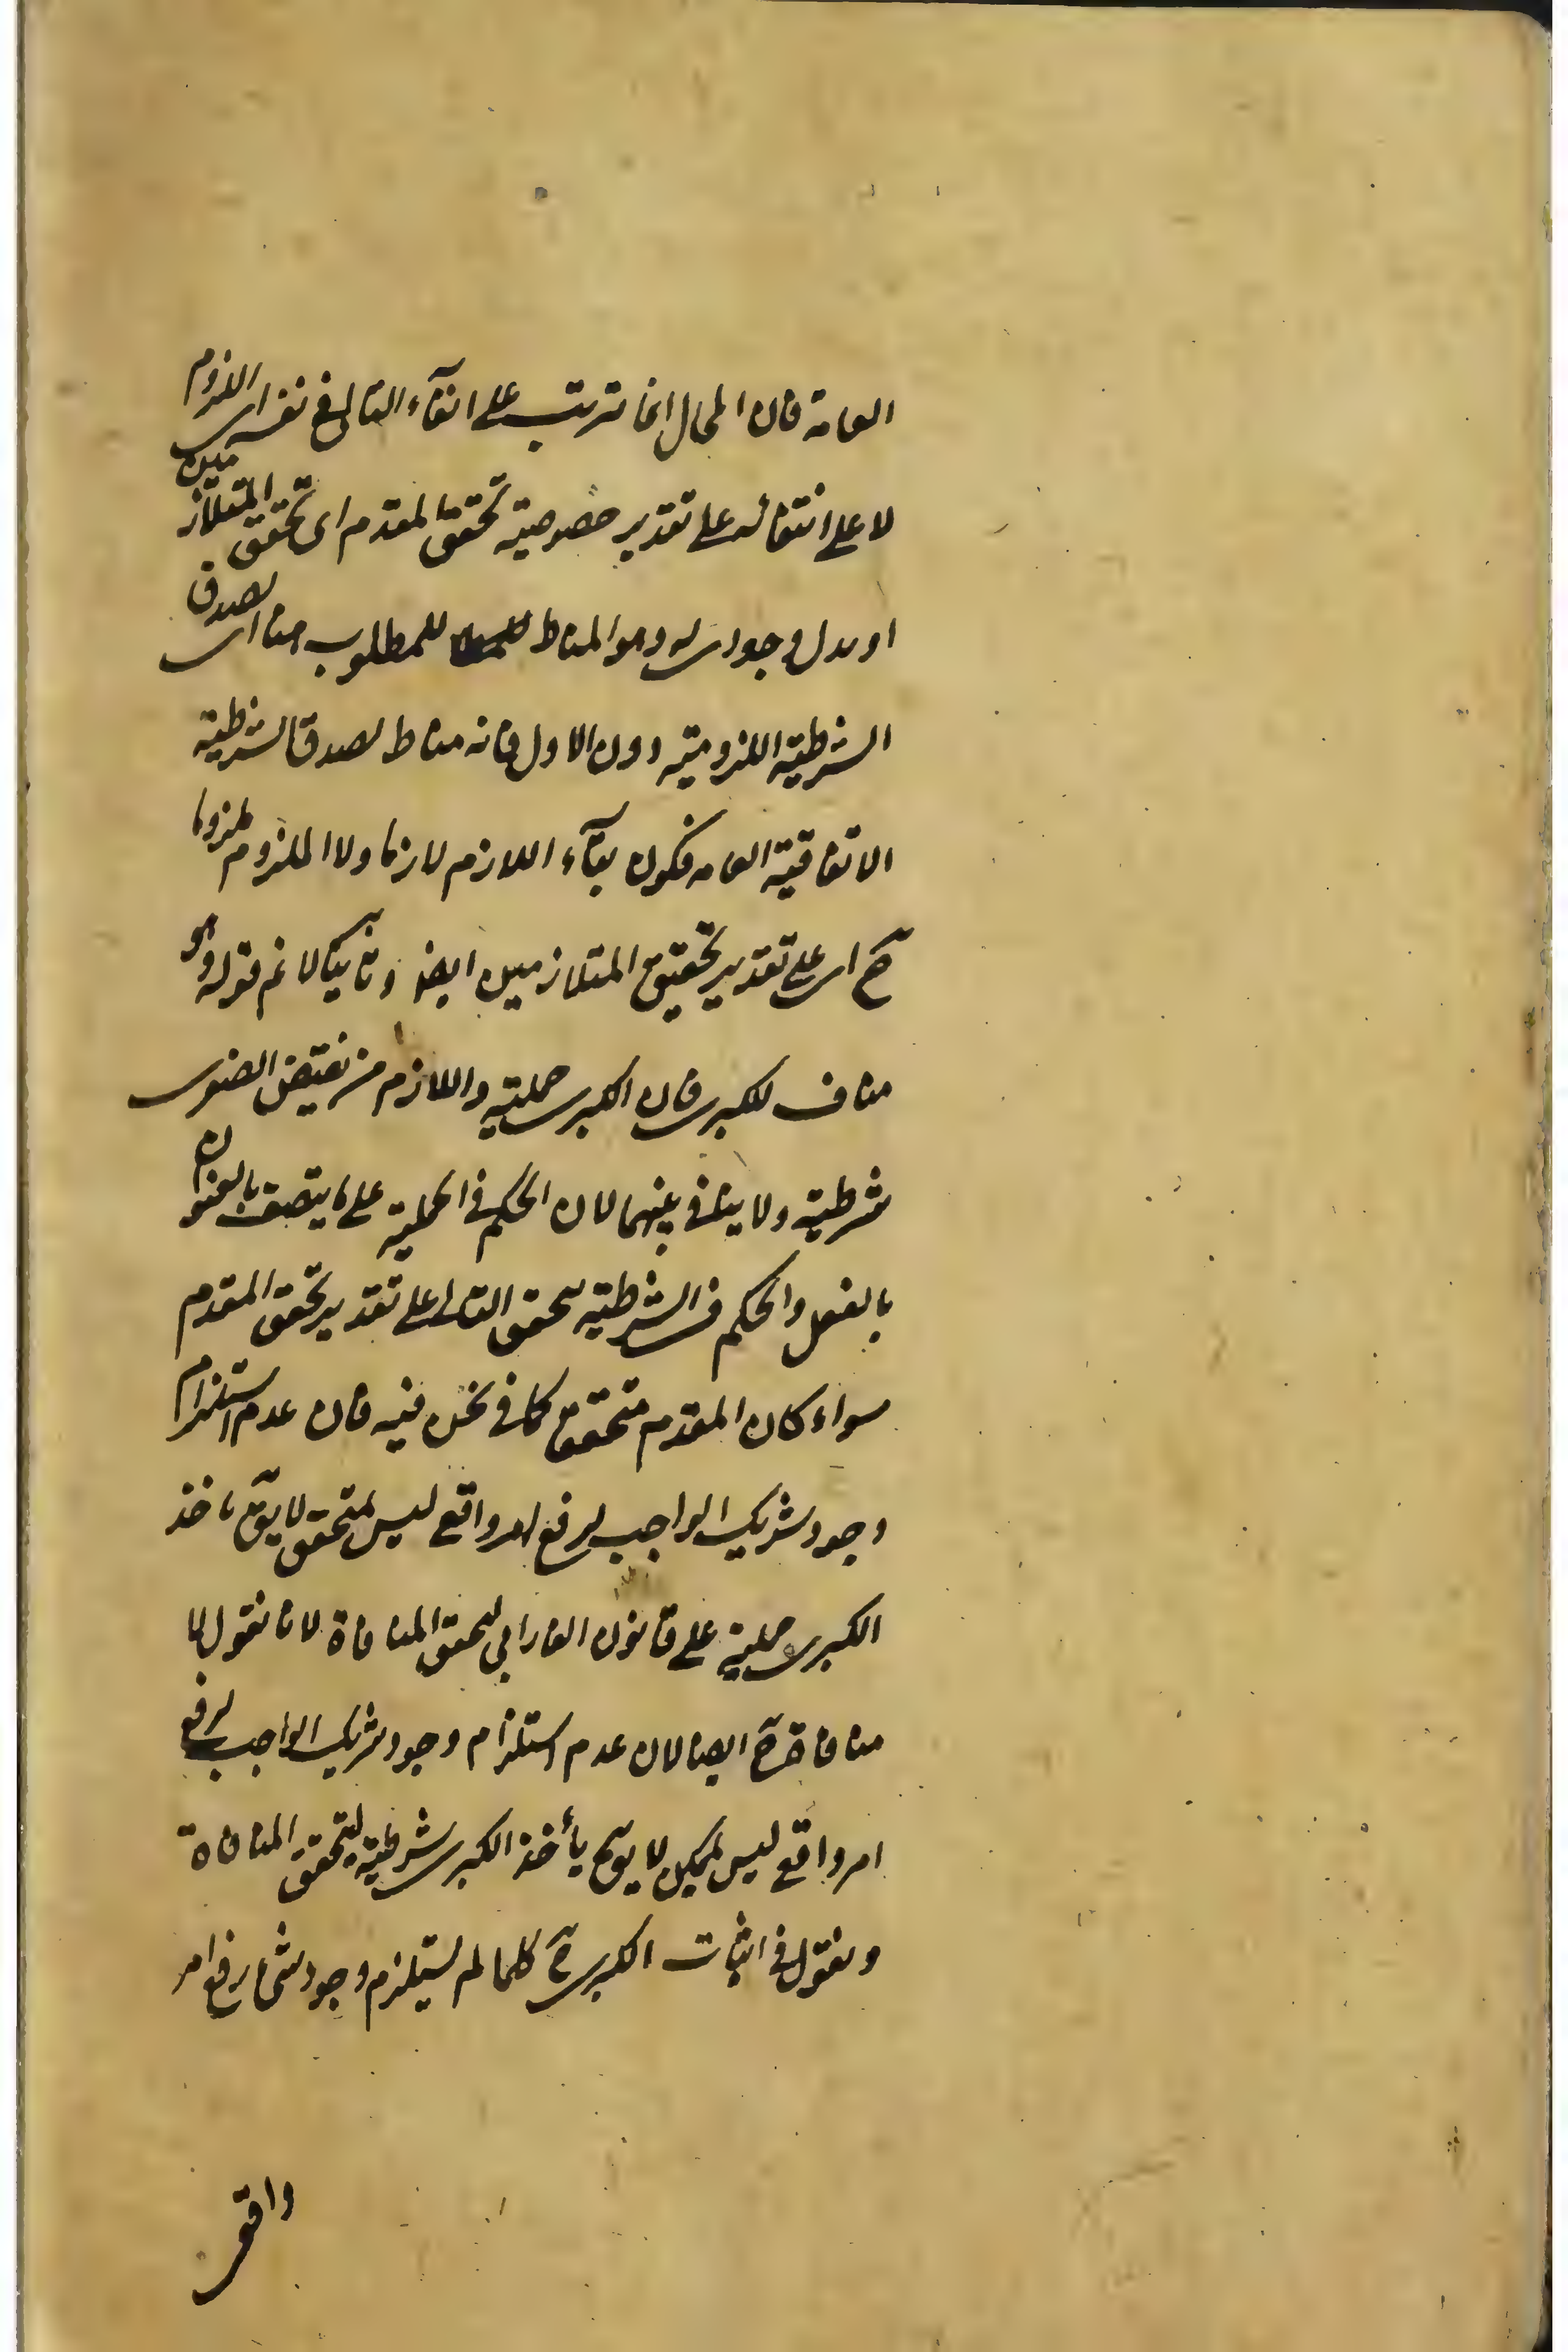 العامة فان المحال انما ترتب على انتفآء التالى فى نفس اللزوم
لا على انتفائه على تقدير خصوصية تحقق المقدم اى تحقق المتلازمين
او وجود وهو المناط للمطلوب هنا اى لصدق
الشرطية اللزومية دون الاول فانه مناط لصدق الشرطية
الاتفاقية العامه فيكون بقآء اللازم لازما ولا الملزوم ملزوما
ح اى على تقدير تحقيق المتلازمين ايضا وثانيا لا نم قوله وهو
مناف للكبرى فان الكبرى حملية واللازم من نقيض الصغرى
شرطية ولا ينافى بينهما لان الحكم فى الحملية على ما يتصف بالعنوان
بالفعل والحكم فى الشرطية بتحقق التالى على تقدير تحقق المقدم
سواء كان المقدم متحققا كما فى نحن فيه فان عدم استلزام
وجود شريك الواجب لرفع امر واقع ليس بمتحقق لا يق ناخذ
الكبرى حملية على قانون الفارابى ليتحقق المنافاة لانا نقول لا
منافاة ح ايضا لان عدم استلزام وجود شريك الواجب لرفع
امر واقع ليس بممكن لا يق يأخذ الكبرى شرطية ليتحقق المنافاة
ونقول فى اثبات الكبرى ح كلما لم يستلزم وجود شئ رفع امر
واقعى